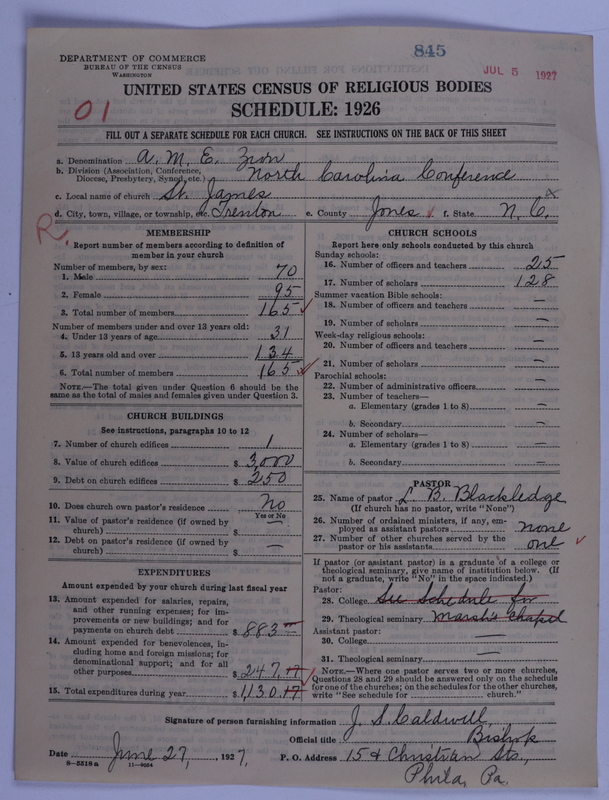 845
JUL 5 1927
DEPARTMENT OF COMMERCE
BUREAU OF THE CENSUS
WASHINGTON
UNITED STATES CENSUS OF RELIGIOUS BODIES
SCHEDULE: 1926
01
FILL OUT A SEPARATE SCHEDULE FOR EACH CHURCH. SEE INSTRUCTIONS ON THE BACK OF THIS SHEET
a. Denomination A. M. E. Zion
b. Division (Association, Conference, Diocese, Presbytery, Synod, etc.) North Carolina Conference
c. Local name of church St. James
d. City, town, village, or township, etc. Trenton e. County Jones f. State N. C.
R.
MEMBERSHIP
Report number of members according to definition of
member in your church
Number of members, by sex:
1. Male 70
2. Female 95
3. Total number of members 165
Number of members under and over 13 years old:
4. Under 13 years of age 31
5. 13 years old and over 134
6. Total number of members 165
NOTE.—The total given under Question 6 should be
same as the total of males and females given under Question 3.
CHURCH BUILDINGS
See instructions, paragraphs 10 to 12
7. Number of church edifices 1
8. Value of church edifices $ 3,000
9. Debt on church edifices $ 250
10. Does church own pastor's residence No
Yes or No
11. Value of pastor's residence (if owned by
church) $ —
12. Debt on pastor's residence (if owned by
church) $ —
EXPENDITURES
Amount expended by your church during last fiscal year
13. Amount expended for salaries, repairs,
and other running expenses; for im-
provements or new buildings; and for
payments on church debt $ 883 —
14. Amount expended for benevolences, in-
cluding home and foreign missions; for
denominational support; and for all
other purposes $ 247.17
15. Total expenditures during year $ 1130.17
CHURCH SCHOOLS
Report here only schools conducted by this church
Sunday schools:
16. Number of officers and teachers 25
17. Number of scholars 128
Summer vacation Bible schools:
18. Number of officers and teachers —
19. Number of scholars —
Week-day religious schools:
20. Number of officers and teachers —
21. Number of scholars —
Parochial schools:
22. Number of administrative officers —
23. Number of teachers—
a. Elementary (grades 1 to 8) —
b. Secondary —
24. Number of scholars—
a. Elementary (grades 1 to 8) —
b. Secondary —
PASTOR
25. Name of pastor L. B. Blackledge
(If church has no pastor, write "None")
26. Number of ordained ministers, if any, em-
ployed as assistant pastors none
27. Number of other churches served by the
pastor or his assistants one
If pastor (or assistant pastor) is a graduate of a college or
theological seminary, give name of institution below. (If
not a graduate, write "No" in the space indicated.)
Pastor:
28. College See Schedule for
29. Theological seminary Marsh's Chapel
Assistant pastor:
30. College —
31. Theological seminary —
NOTE.—Where one pastor serves two or more churches,
Questions 28 and 29 should be answered only on the schedule
for one of the churches; on the schedules for the other churches,
write "See schedule for church."
Signature of person furnishing information J. S. Caldwell,
Official title Bishop
Date June 27, 1927, P. O. Address 15 & Christian Sts.,
Phila, Pa.
8—5518 a 11—9024